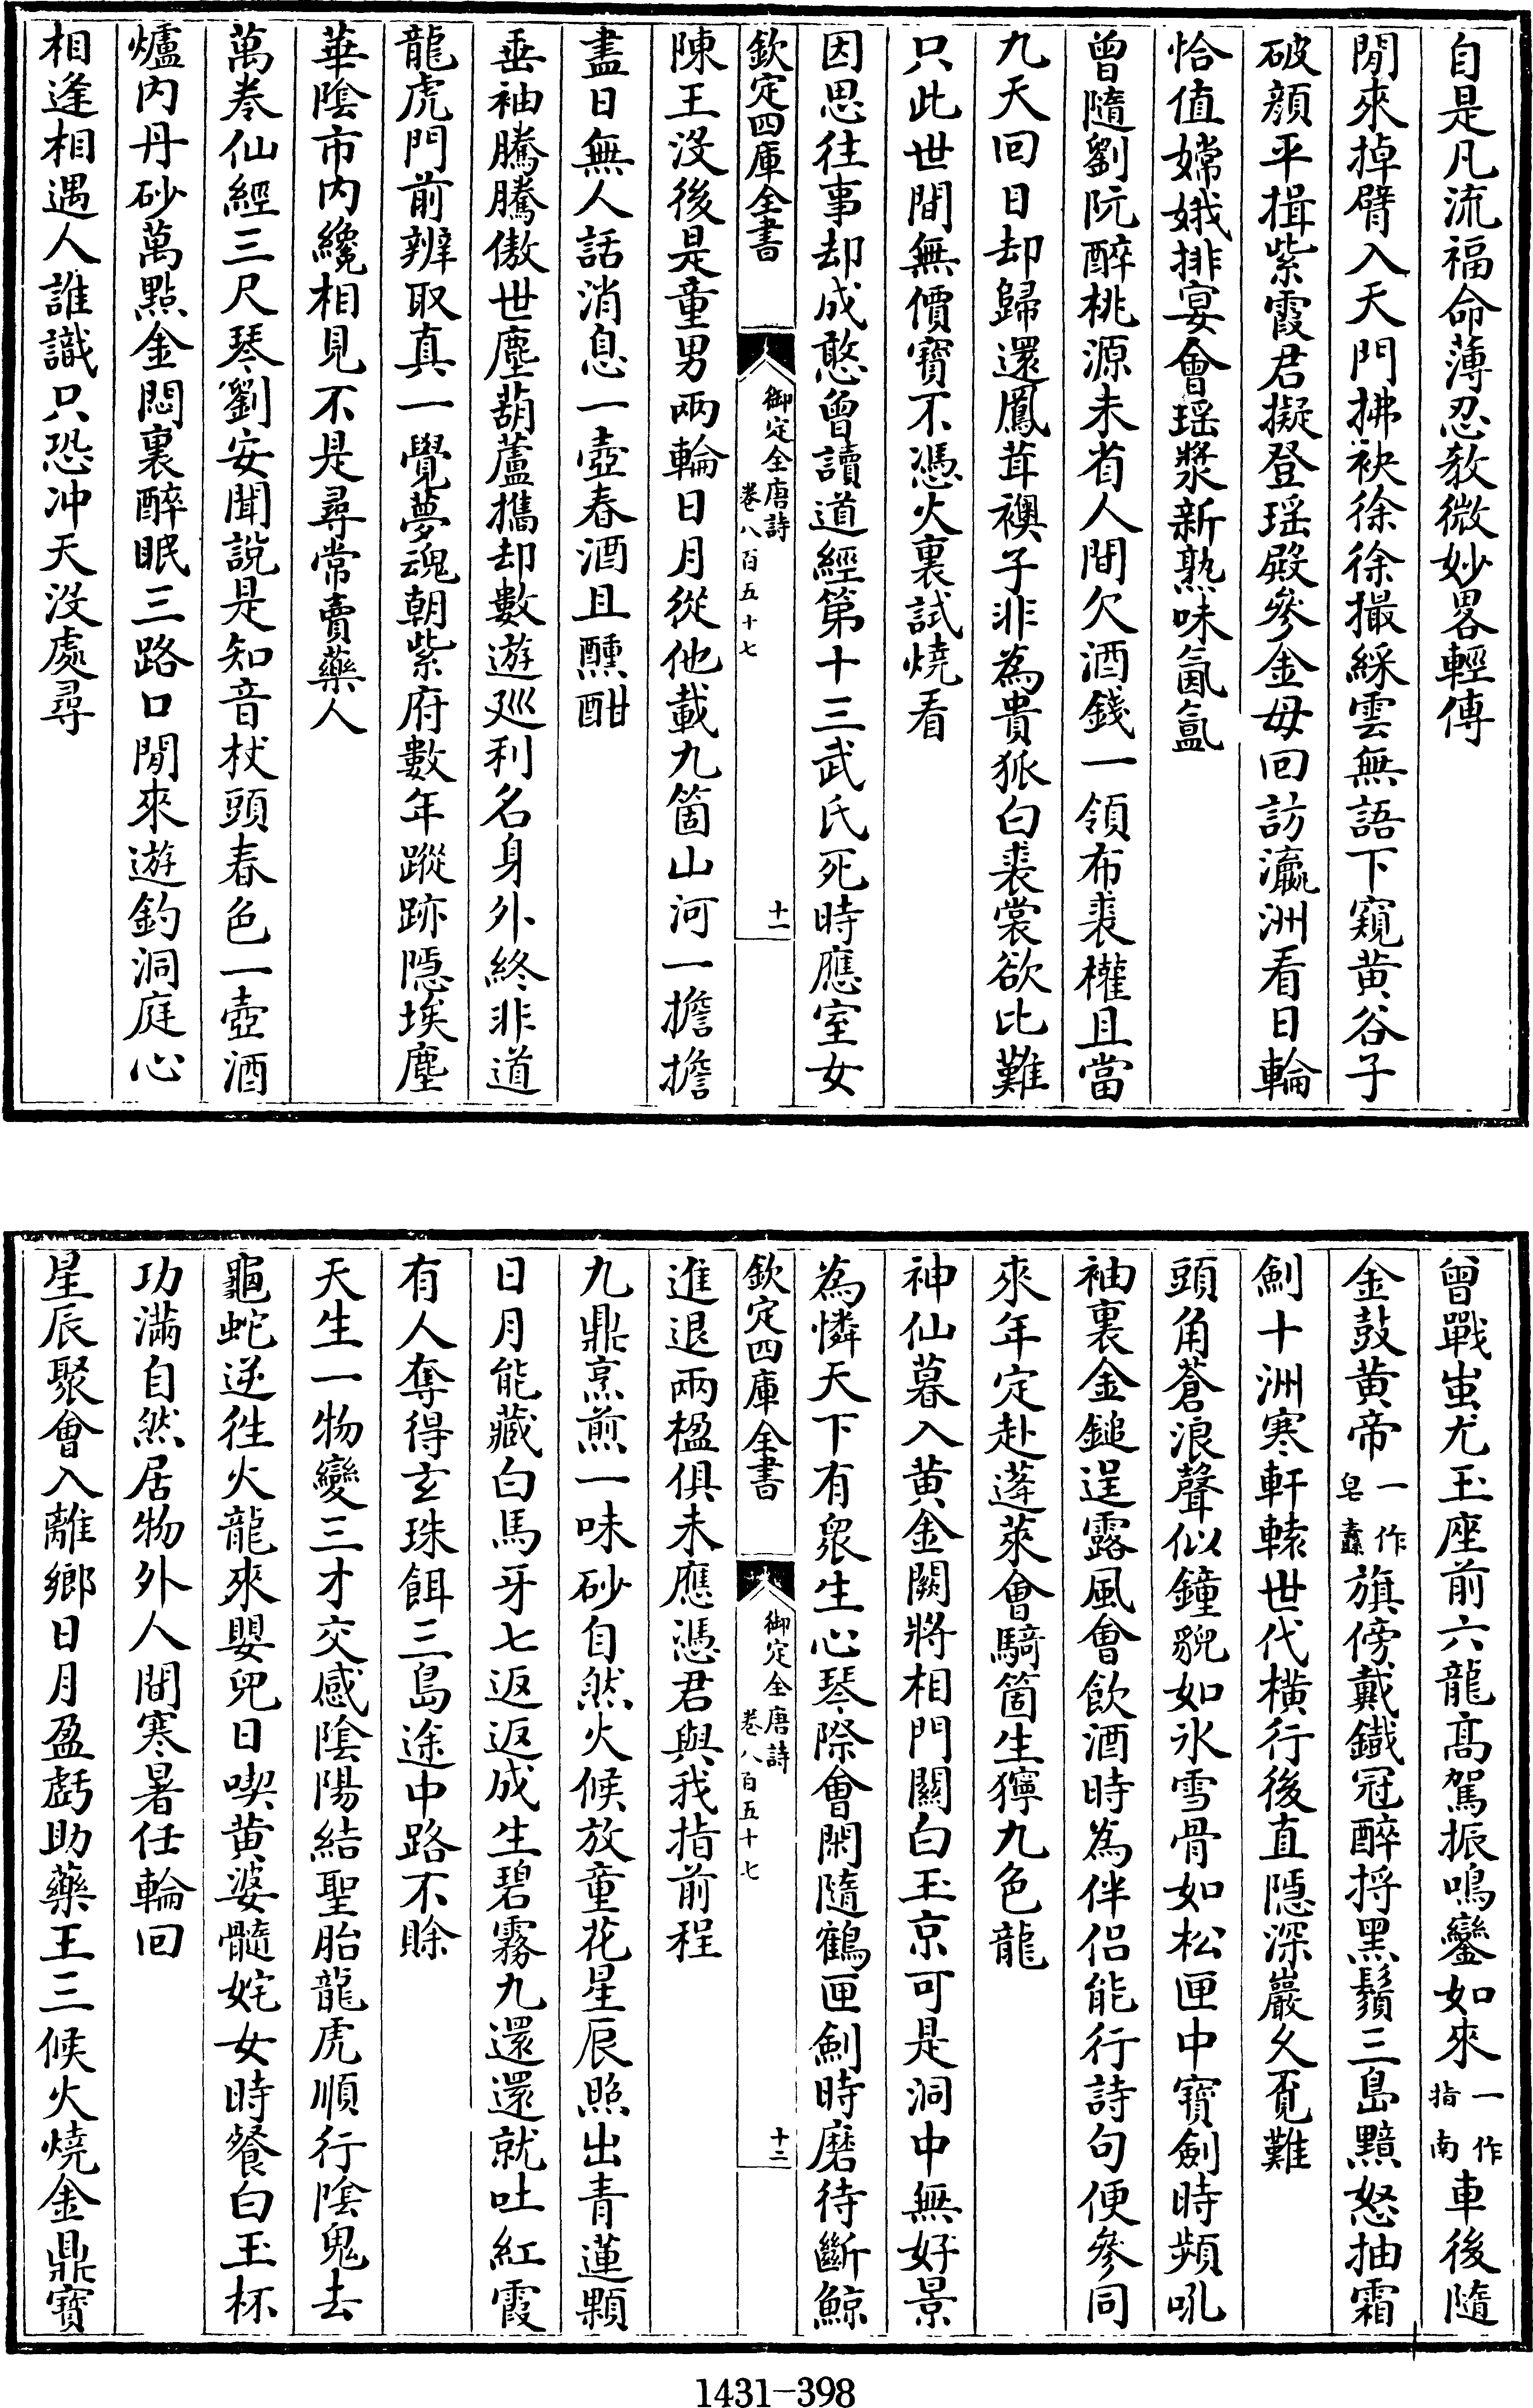 自是凡流福命薄忍教微妙畧輕傳
閒來掉臂入天門拂袂徐徐撮綵雲無語下窺黄谷子
破顔平揖紫霞君擬登瑶殿參金母回訪瀛洲看日輪
恰值嫦娥排宴會瑶漿新熟味氤氲
曾隨劉阮醉桃源未省人間欠酒錢一領布裘權且當
九天回日却歸還鳳茸襖子非為貴狐白裘裳欲比難
只此世間無價寶不憑火裏試燒看
因思往事却成憨曾讀道經第十三武氏死時應室女
欽定四庫全書
御定全唐詩
卷八百五十七
十一
陳王没後是童男兩輪日月從他載九箇山河一擔擔
盡日無人話消息一壺春酒且醺酣
垂袖騰騰傲世塵葫蘆攜却數遊廵利名身外終非道
龍虎門前辨取真一覺夢魂朝紫府數年蹤跡隱埃塵
華陰市内纔相見不是尋常賣藥人
萬卷仙經三尺琴劉安聞說是知音杖頭春色一壺酒
爐内丹砂萬點金悶裏醉眠三路口閒來遊釣洞庭心
相逢相遇人誰識只恐冲天没處尋
曾戰蚩尤玉座前六龍髙駕振鳴鑾如來一作指南車後隨
金鼓黄帝一作皂纛旗傍戴鐡冠醉捋黑鬚三島黯怒抽霜
劍十洲寒軒轅世代橫行後直隱深巖久覔難
頭角蒼浪聲似鐘貌如氷雪骨如松匣中寶劍時頻吼
袖裏金鎚逞露風會飲酒時為伴侣能行詩句便參同
來年定赴蓬萊會騎箇生獰九色龍
神仙暮入黄金闕將相門關白玉京可是洞中無好景
為憐天下有衆生心琴際會閑隨鶴匣劍時磨待斷鯨
欽定四庫全書
御定全唐詩
卷八百五十七
十二
進退兩楹俱未應憑君與我指前程
九鼎烹煎一味砂自然火候放童花星辰照出青蓮顆
日月能藏白馬牙七返返成生碧霧九還還就吐紅霞
有人奪得玄珠餌三島途中路不賖
天生一物變三才交感陰陽結聖胎龍虎順行陰鬼去
龜蛇逆往火龍來嬰兒日喫黄婆髓姹女時餐白玉杯
功滿自然居物外人間寒暑任輪回
星辰聚會入離鄉日月盈虧助藥王三候火燒金鼎寶
1431-398